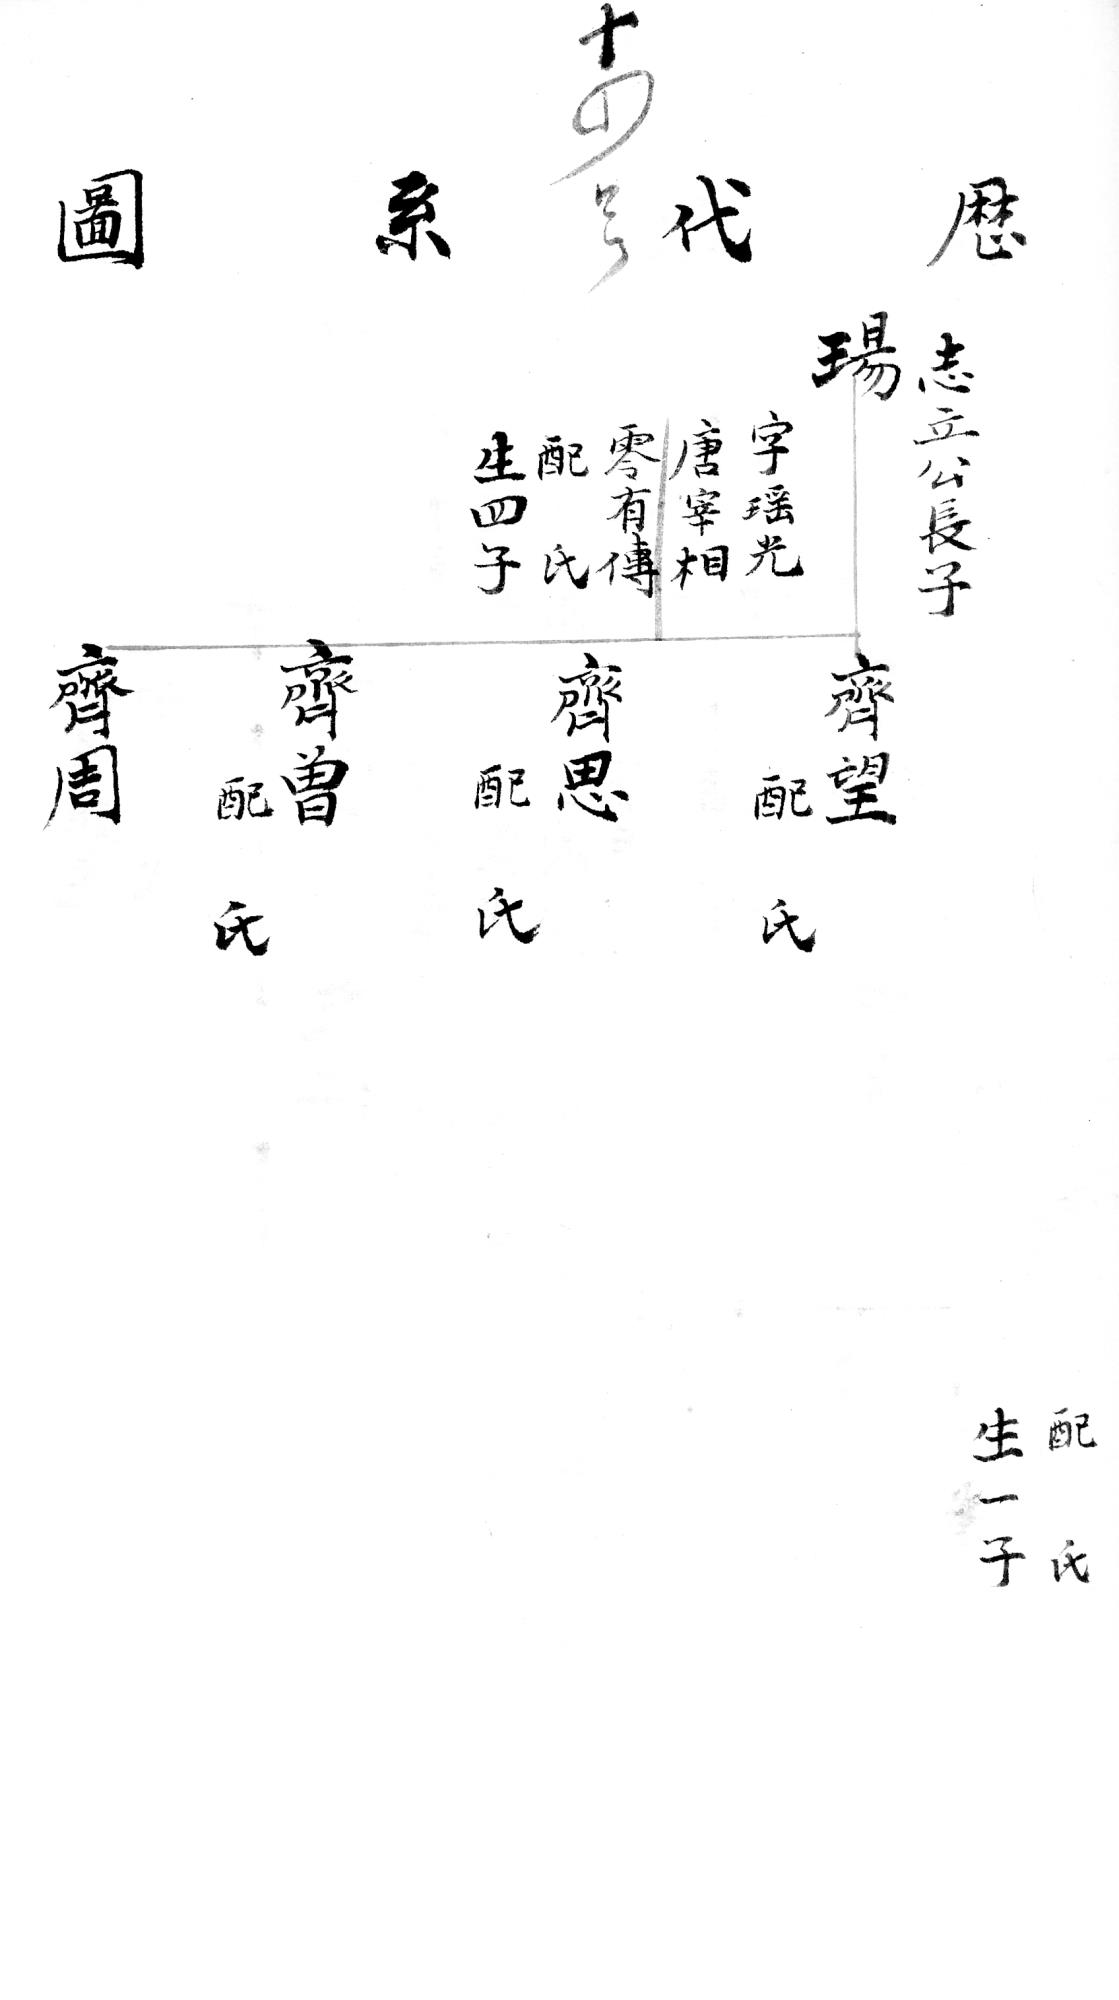 十四号
歴代系圖
志立公長子
瑒
字瑶光
唐宰相
零有傳
配 氏
生四子
齊望
配 氏
齊思
配 氏
齊曾
配 氏
齊周
配 氏
生一子